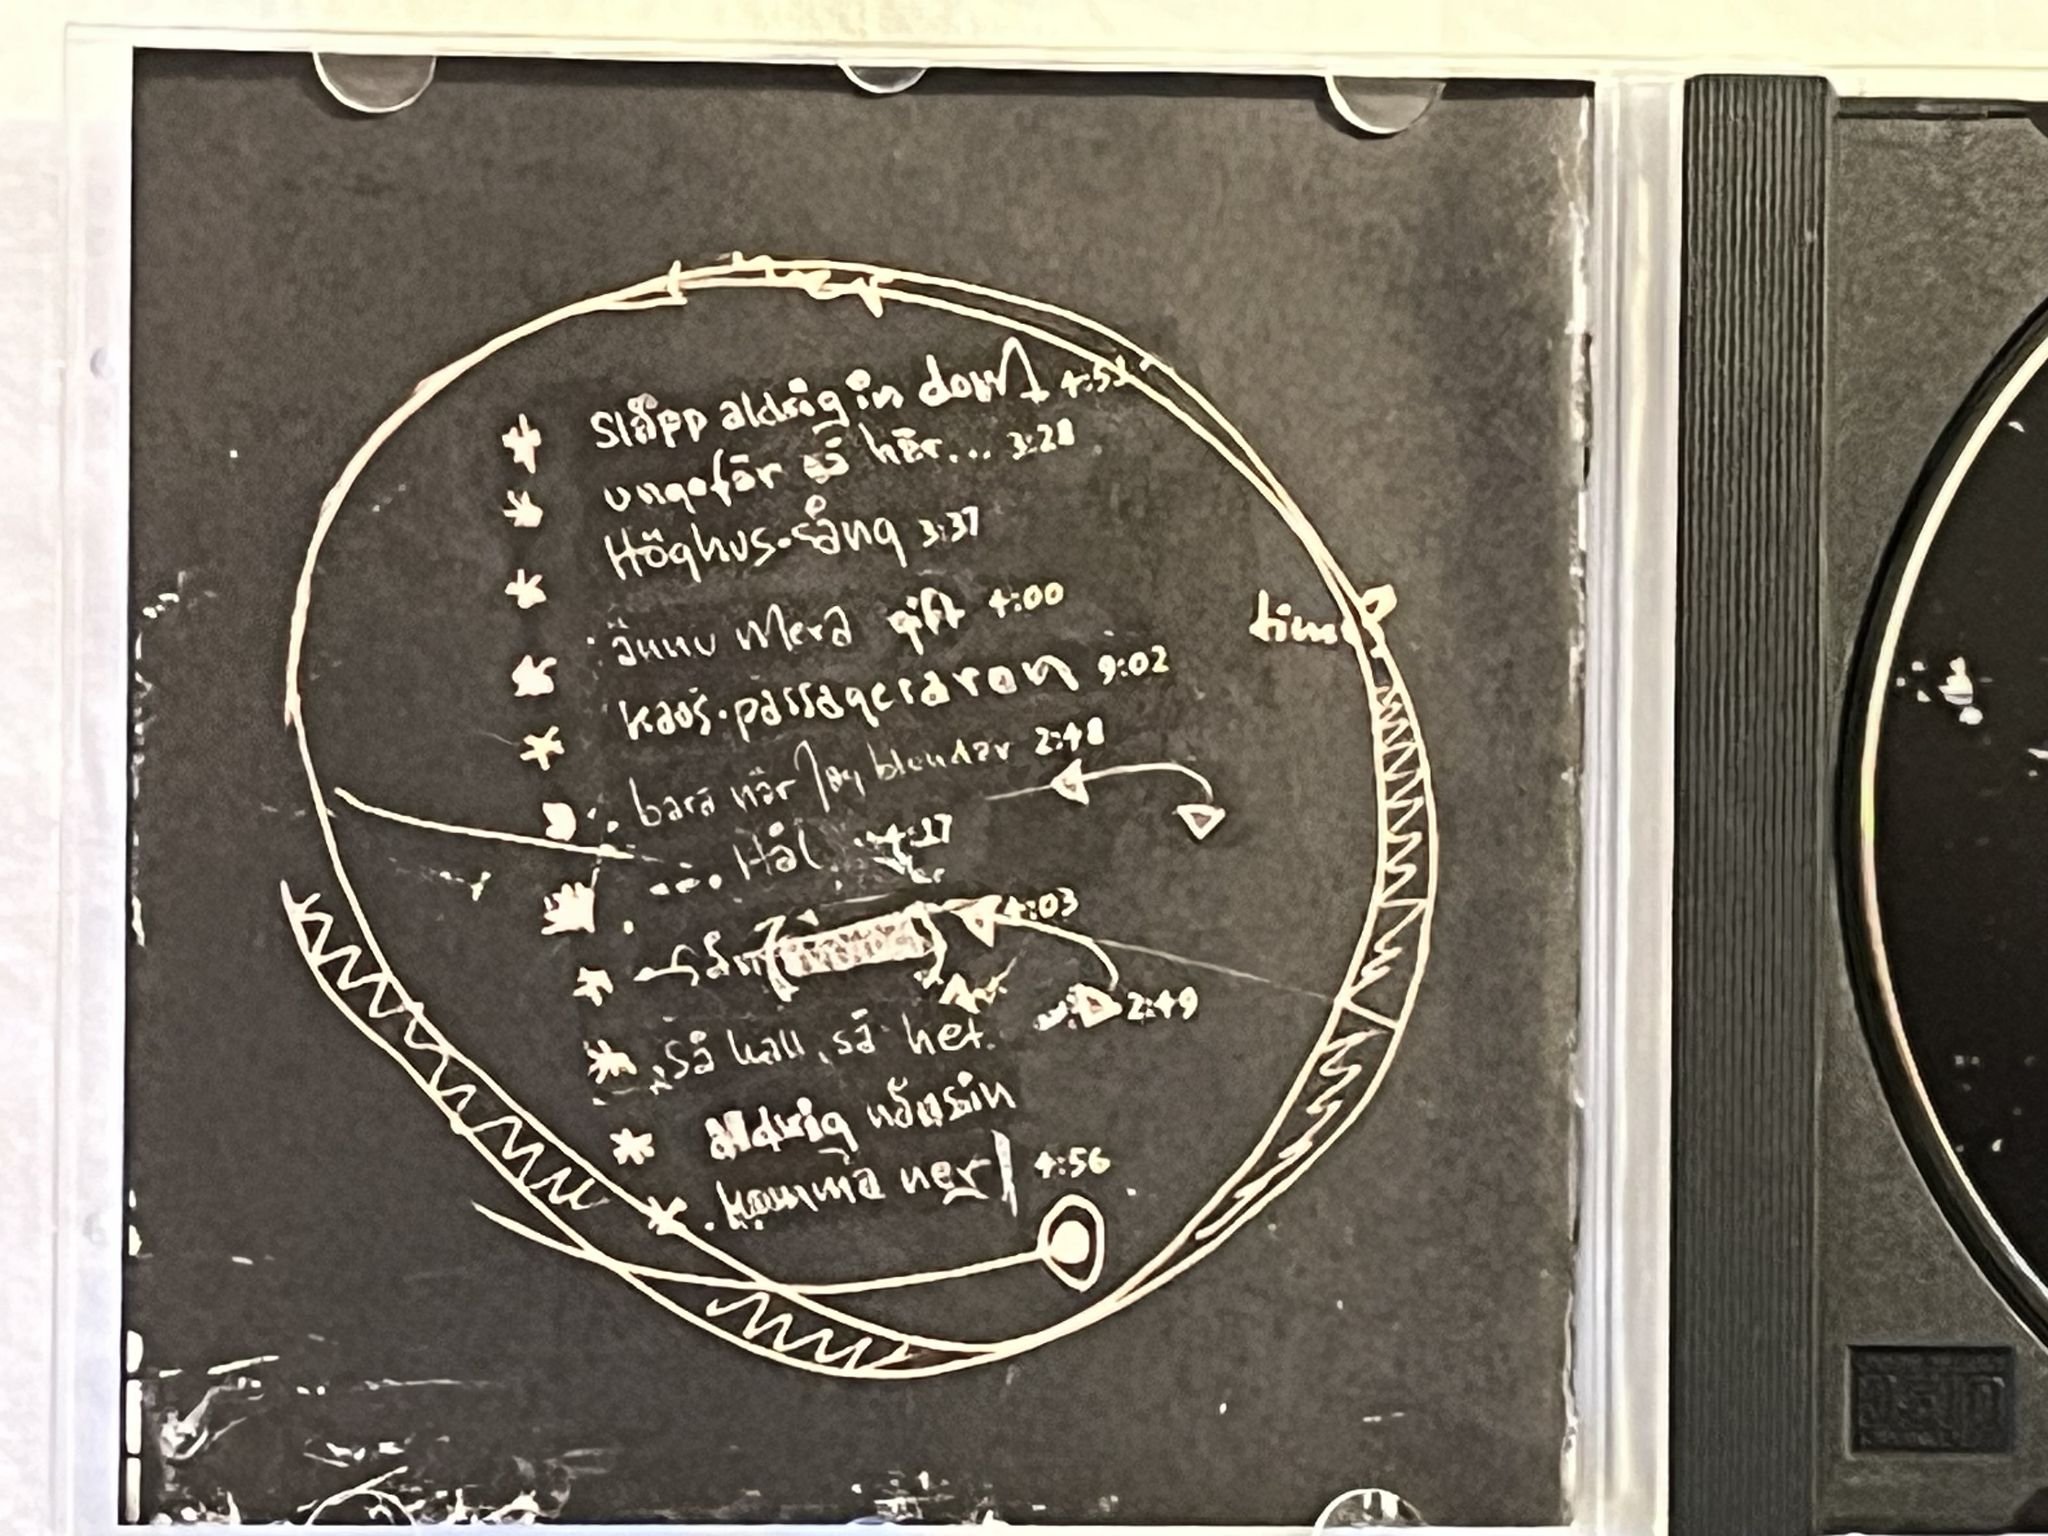 Släpp aldrig in dom! 4:52
ungefär så här... 3:28
Höghus-sång 3:37
ännu mera gift 4:00
kaos-passageraren 9:02
bara när jag blundar 2:48
Hål 4:27
4:03
2:49
så kall, så het.
aldrig nånsin
komma ner 4:56
time